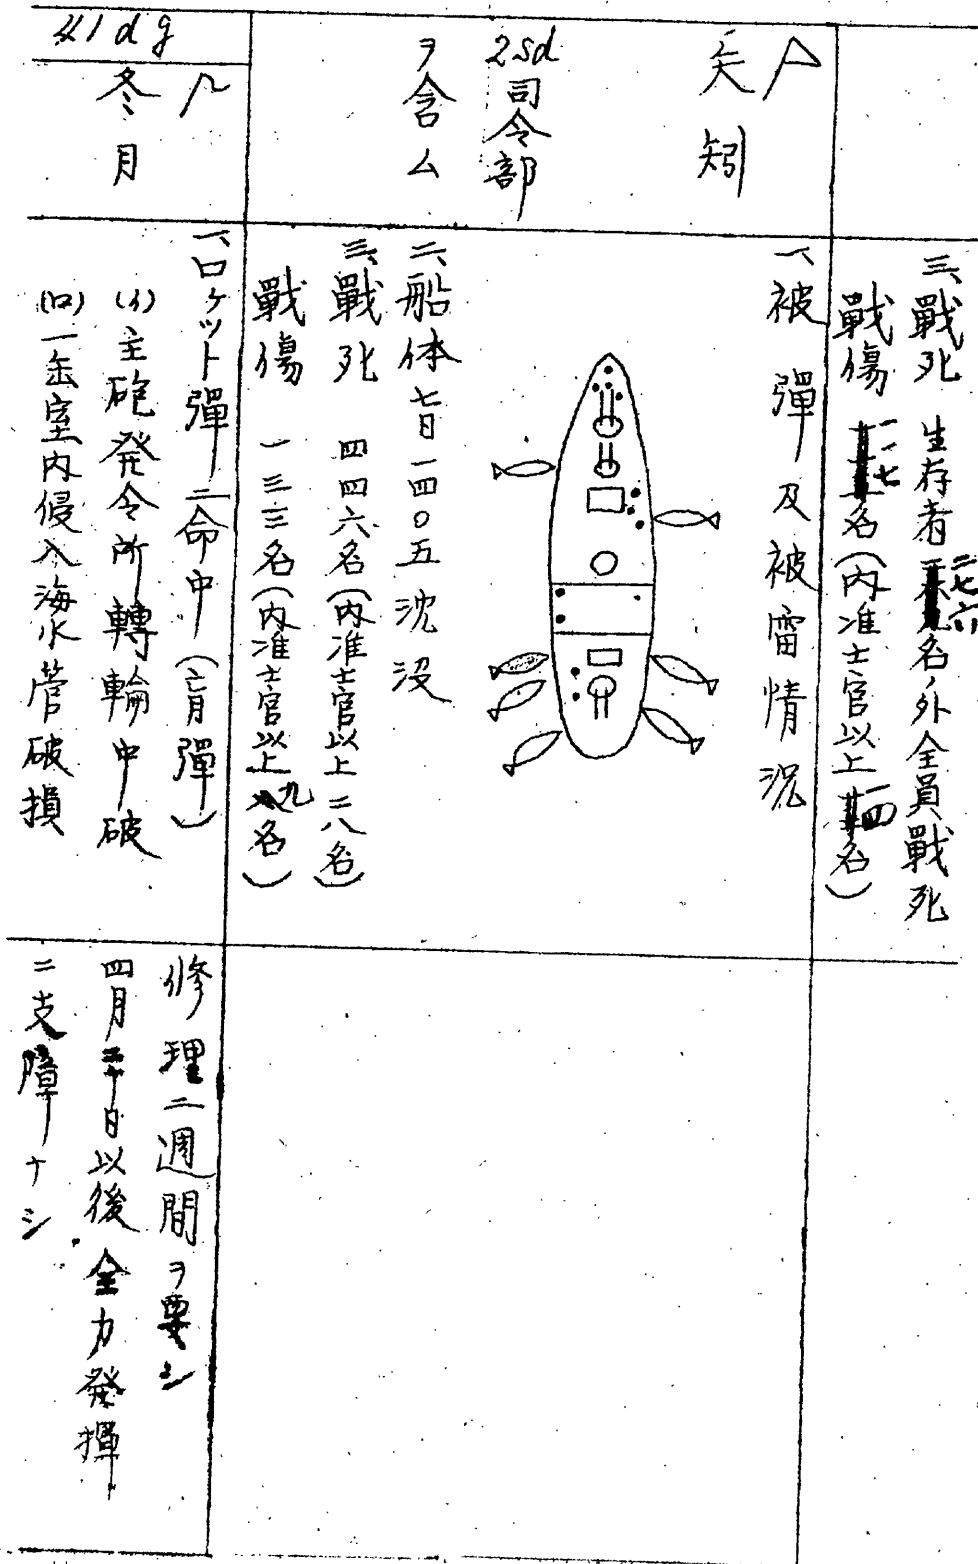 三、戰死 生存者二七六名ノ外全員戰死
戰傷 一一七名(內准士官以上一四名)
矢矧
2sd司令部
ヲ含ム
一、被彈及被雷情況
二、船体 七日一四〇五沈沒
三、戰死 四四六名(內准士官以上二八名)
戰傷 一三三名(內准士官以上九名)
41dg
冬月
一、ロケット彈二命中(盲彈)
(イ)主砲発令所轉輪中破
(ロ)一缶室內侵入海水管破損
修理二週間ヲ要シ
四月 日以後全力発揮
ニ支障ナシ